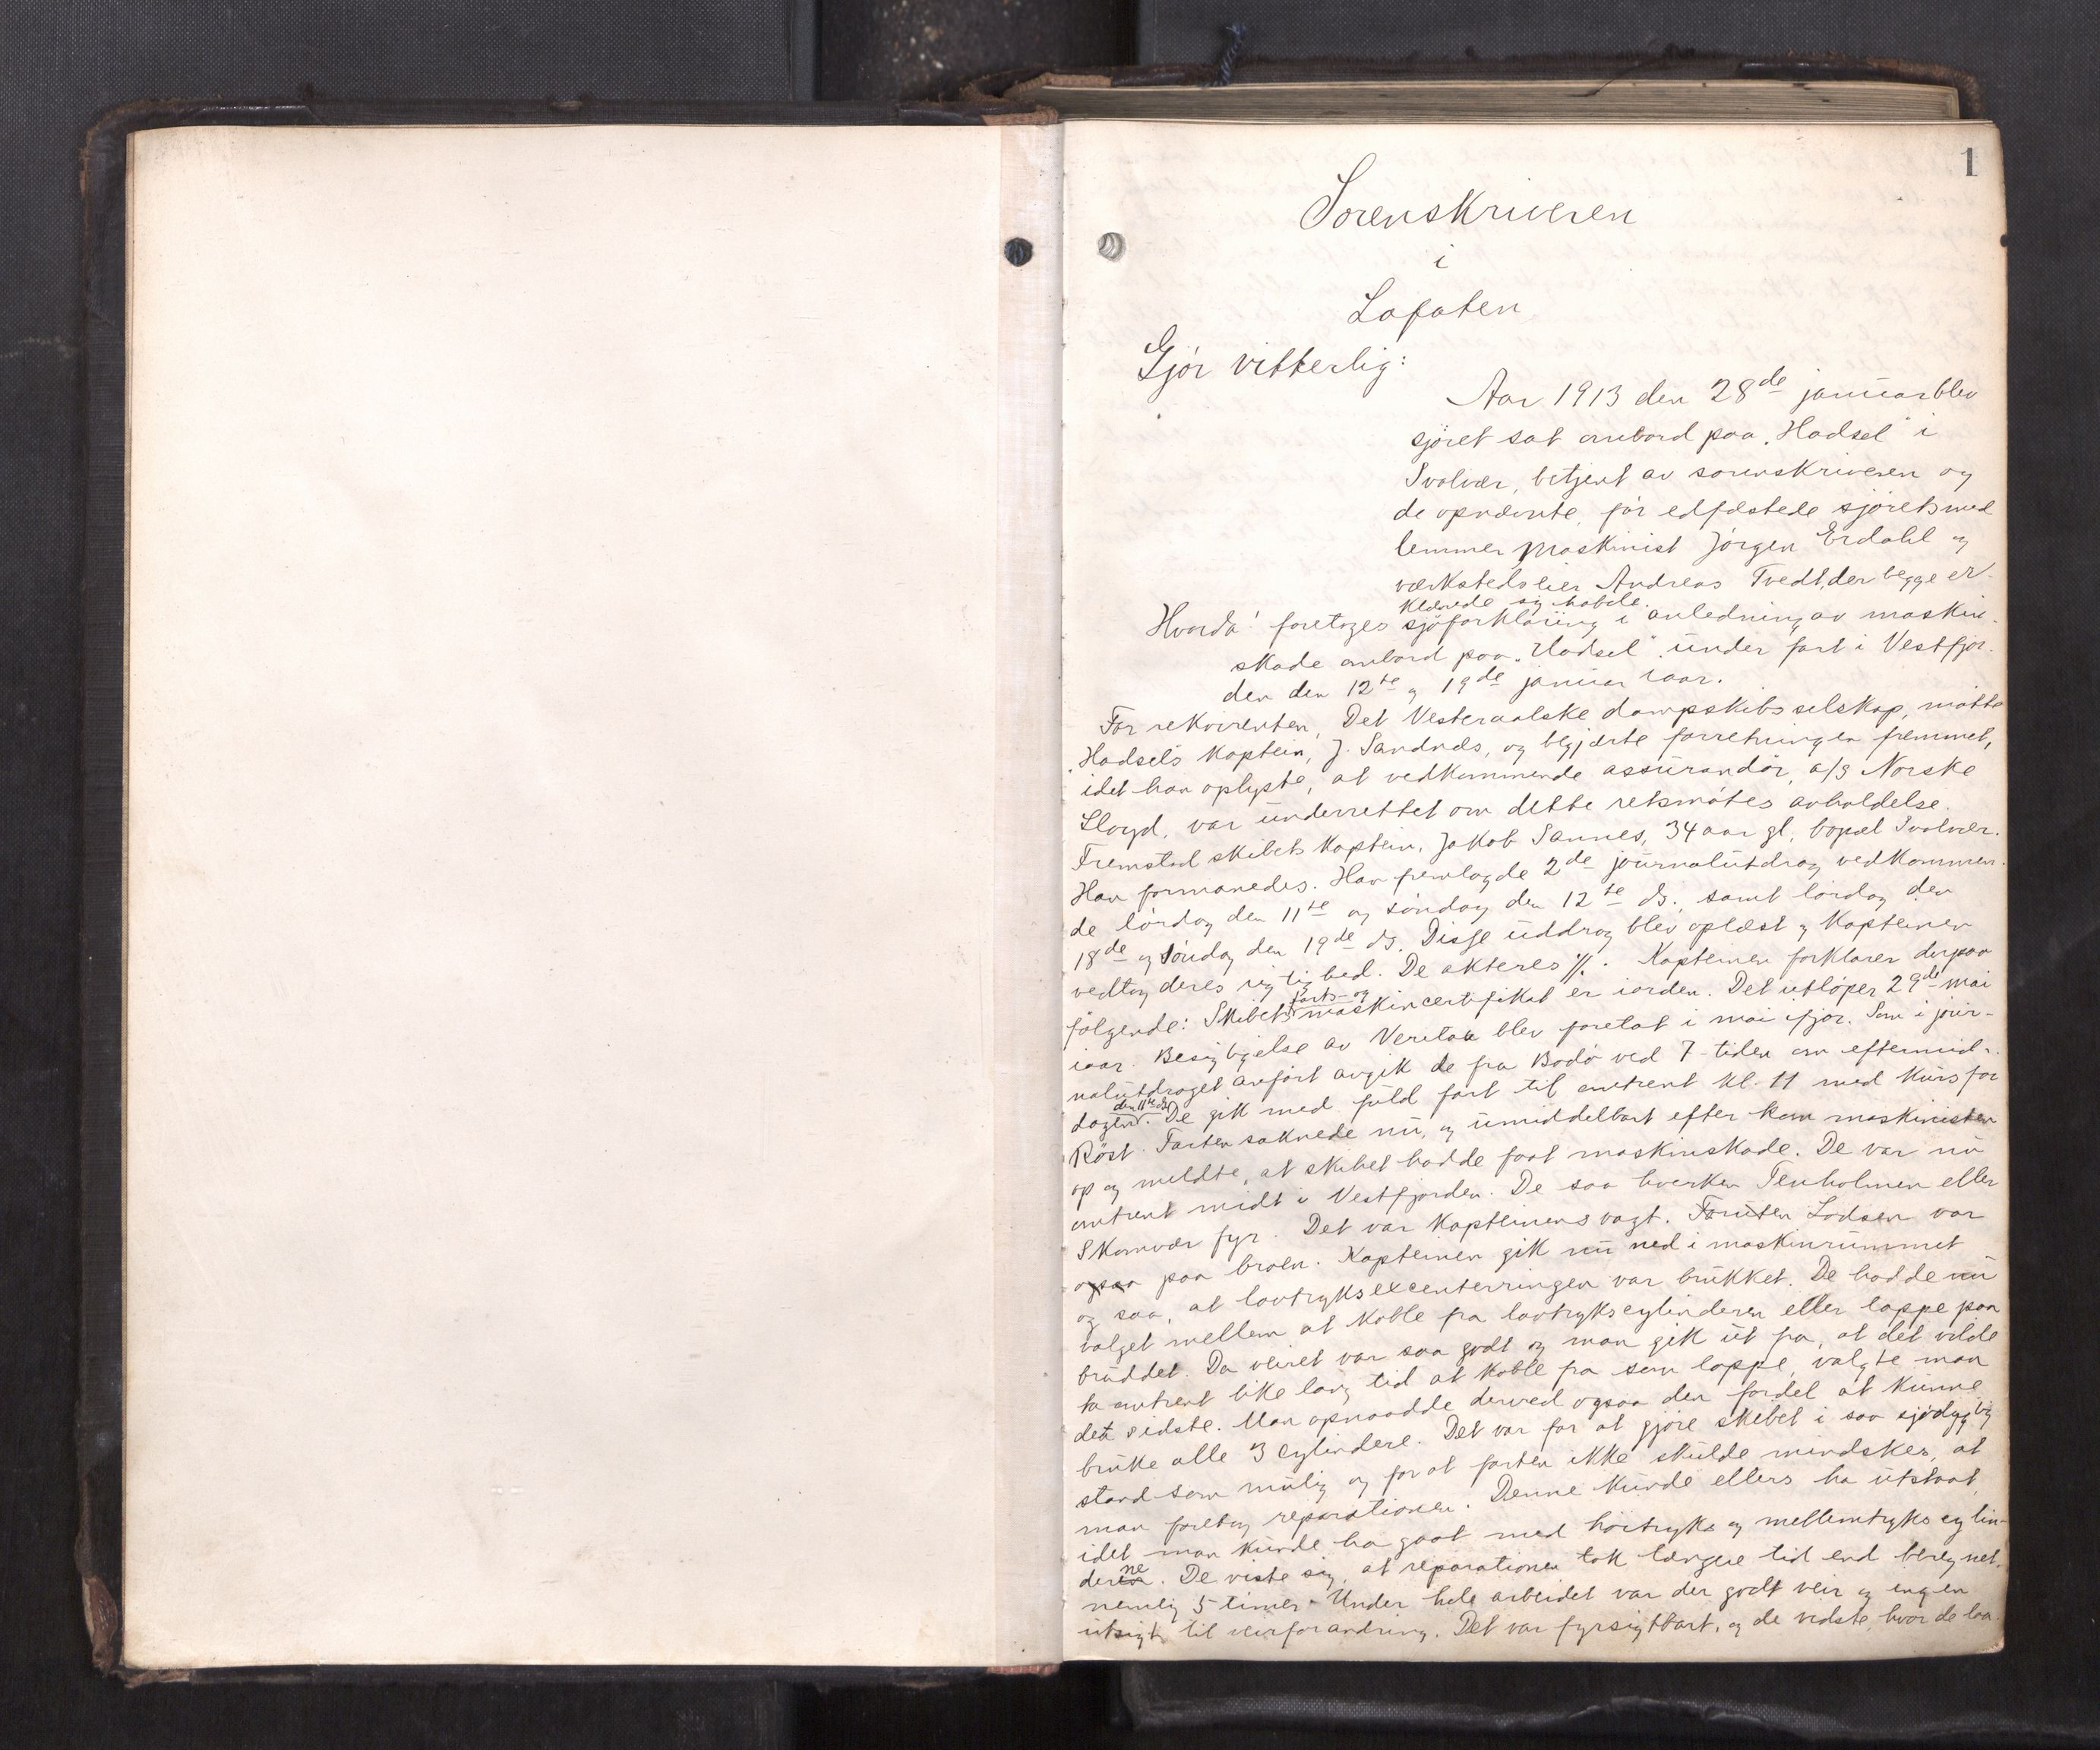 1
Sorenskriveren
i
Lofoten
Gjör vitterlig:
Aar 1913 den 28de januar blev
sjöret sat ombord paa „Hadsel" i
Svolvær, betjent av sorenskriveren og
de opnævnte, før edfæstede sjöretsmed
lemmer maskinist Jörgen Erdahl og
verkstedseier Andreas Tvedt, der begge er-
klærede sig habile.
Hvorda! foretoges sjöforklaring i anledning av maskin-
skade ombord paa „Hadsel" under fart i Vestfjor-
den den 12te og 19de januar iaar.
For rekvirenten, Det Vesteraalske dampskibsselskap, mötte
„Hadsel"s kaptein, J. Sandnes, og begjærte forretningen fremmet,
idet han oplyste, at vedkommende assurandör, a/s Norske
Lloyd, var underrettet om dette retsmötes avholdelse.
Fremstod skibets kaptein, Jakob Sannes, 34 aar gl., bopæl Svolvær.
Han formanedes. Han fremlagde 2de journalutdrag vedkommen-
de lördag den 11te og söndag den 12te ds., samt lördag den
18de og söndag den 19de ds. Disse uddrag blev oplæst og kapteinen
vedtog deres rigtighed. De akteres ·/.. Kapteinen forklarer derpaa
fölgende: Skibets farts- og maskincertifikat er iorden. Det utlöper 29de mai
iaar. Besigtigelse av Veritas blev foretat i mai ifjor. Som i jour-
nalutdraget anfört avgik de fra Bodö ved 7-tiden om eftermid-
dagen den 11te ds. De gik med fuld fart til omtrent kl. 11 med kurs for
Röst. Farten saknede nu, og umiddelbart efter kom maskinisten
op og meldte, at skibet hadde faat maskinskade. De var nu
omtrent midt i Vestfjorden. De saa hverken Tenholmen eller
Skomvær fyr. Det var kapteinens vagt. Foruten Lodsen var
ogsaa paa broen. Kapteinen gik nu ned i maskinrummet
og saa, at lavtryksexcenterringen var brukket. De hadde nu
valget mellem at koble fra lavtrykscylinderen eller lappe paa
bruddet. Da veiret var saa godt og man gik ut fra, at det vilde
ta omtrent like lang tid at koble fra som lappe, valgte man
det sidste. Man opnaadde derved ogsaa den fordel at kunne
bruke alle 3 cylindere. Det var for at gjöre skibet i saa sjödygtig
stand som mulig og for at farten ikke skulde mindskes, at
man foretog reparationen. Denne kunde ellers ha utstaat,
idet man kunde ha gaat med höitryks og mellemtryks cylin-
derne. De viste sig, at reparationen tok længere tid end beregnet,
nemlig 5 timer. Under hele arbeidet var der godt veir og ingen
utsigt til veirforandring. Det var fyrsigtbart, og de vidste, hvor de laa.